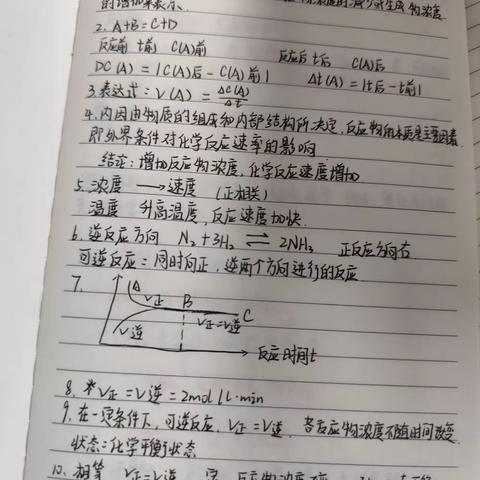 的增加来表示.
2. A+B=C+D
反应前 t前 C(A)前 反应后t后 C(A)后
DC(A) = |C(A)后 - C(A)前| Δt(A) = |t后 - t前|
3. 表达式: V(A) = ΔC(A)/Δt
4. 内因由物质的组成和内部结构所决定, 反应物的本质是主要因素
即外界条件对化学反应速率的影响
结论: 增加反应物浓度, 化学反应速度增加
5. 浓度 → 速度 (正相关)
温度 升高温度, 反应速度加快.
6. 逆反应方向 N₂+3H₂ ⇌ 2NH₃ 正反应方向右
可逆反应: 同时向正, 逆两个方向进行的反应
7. A
V正 B
V逆 V正=V逆 C
反应时间t
8. * V正 = V逆 = 2mol/L·min
9. 在一定条件下, 可逆反应, V正 = V逆, 各反应物浓度不随时间改变
状态: 化学平衡状态
10. 相等 V正=V逆